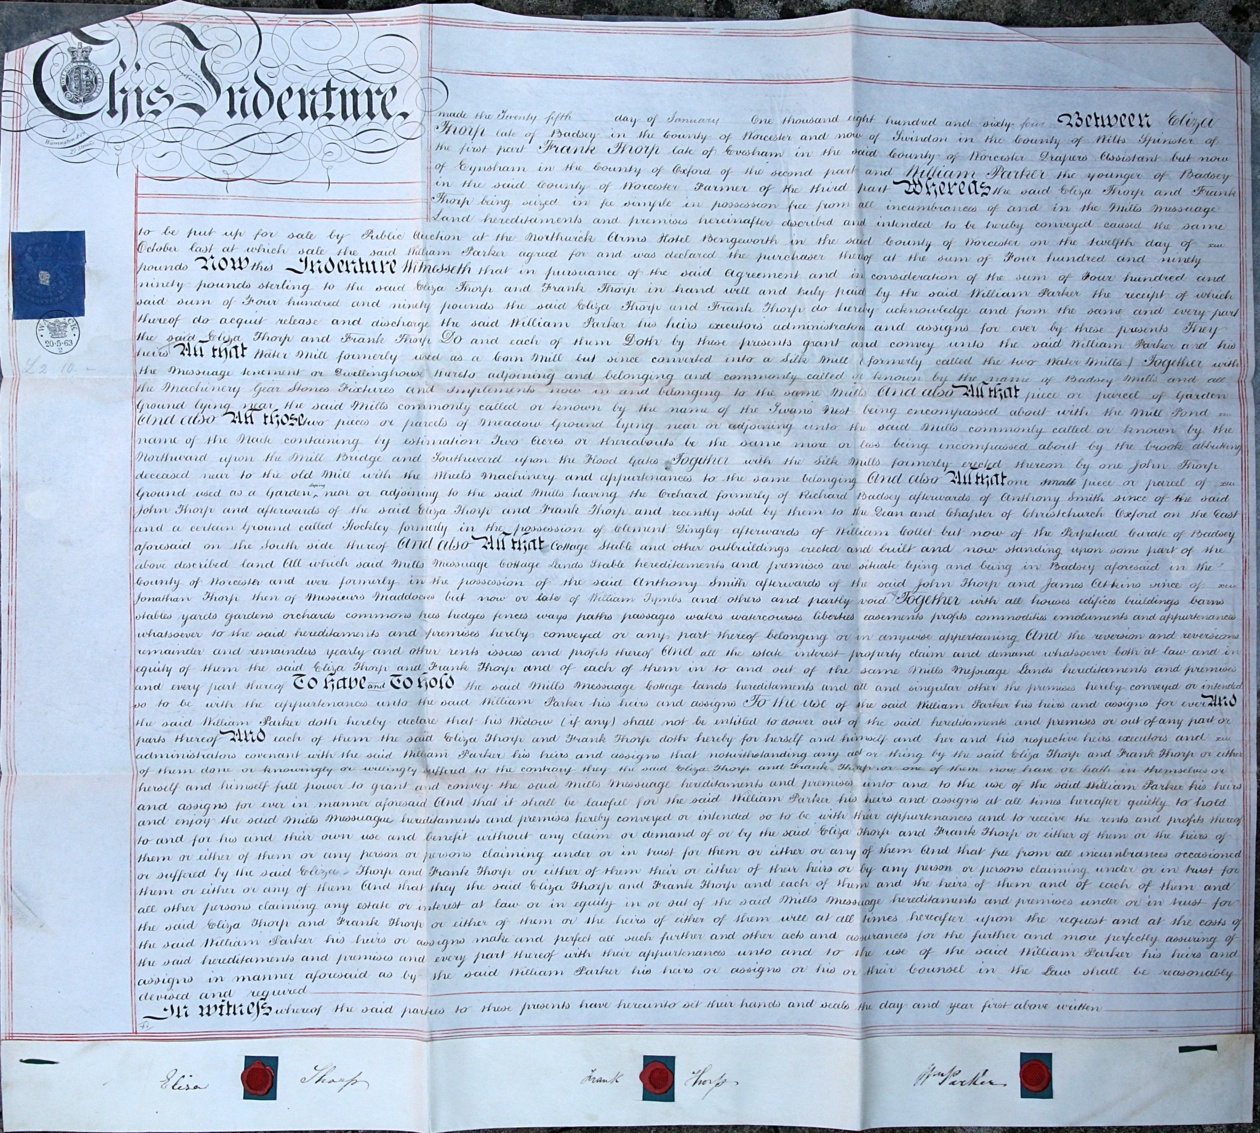 This Indenture.
made the Twenty fifth day of January One thousand eight hundred and sixty four Between Eliza
Thorp late of Badsey in the County of Worcester and now of Swindon in the County of Wilts Spinster of
the first part Frank Thorp late of Evesham in the said County of Worcester Drapers Assistant but now
of Eynsham in the County of Oxford of the second part and William Parker the younger of Badsey
in the said County of Worcester Farmer of the third part Whereas the said Eliza Thorp and Frank
Thorp being seized in fee simple in possession free from all incumbrances of and in the Mills Messuage
Land hereditaments and premises hereinafter described and intended to be hereby conveyed caused the same
to be put up for sale by Public Auction at the Northwick Arms Hotel Bengeworth in the said County of Worcester on the twelfth day of
October last at which sale the said William Parker agreed for and was declared the purchaser thereof at the sum of Four hundred and ninety
pounds Now this Indenture Witnesseth that in pursuance of the said Agreement and in consideration of the sum of Four hundred and
ninety pounds sterling to the said Eliza Thorp and Frank Thorp in hand well and truly paid by the said William Parker the receipt of which
said sum of Four hundred and ninety pounds the said Eliza Thorp and Frank Thorp do hereby acknowledge and from the same and every part
thereof do acquit release and discharge the said William Parker his heirs executors administrators and assigns for ever by these presents They
the said Eliza Thorp and Frank Thorp Do and each of them Doth by these presents grant and convey unto the said William Parker and his
heirs All that Water Mill formerly used as a Corn Mill but since converted into a Silk Mill (formerly called the two Water Mills) Together with
the Messuage tenement or Dwellinghouse thereto adjoining and belonging and commonly called or known by the name of Badsey Mills and all
the Machinery Gear Stones Fixtures and Implements now in and belonging to the same Mills And also All that piece or parcel of Garden
Ground lying near the said Mills commonly called or known by the name of the Swans Nest being encompassed about with the Mill Pond
And also All those two pieces or parcels of Meadow Ground lying near or adjoining unto the said Mills commonly called or known by the
name of the Naite containing by estimation Two Acres or thereabouts be the same more or less being incompassed about by the brook abutting
Northward upon the Mill Bridge and Southward upon the Flood Gates Together with the Silk Mills formerly erected thereon by one John Thorp
deceased near to the old Mill with the Wheels Machinery and appurtenances to the same belonging And also All that one small piece or parcel of
Ground used as a Garden, near or adjoining to the said Mills having the Orchard formerly of Richard Badsey afterwards of Anthony Smith since of the said
John Thorp and afterwards of the said Eliza Thorp and Frank Thorp and recently sold by them to the Dean and Chapter of Christchurch Oxford on the East
and a certain Ground called Hockley formerly in the possession of Clement Dingley afterwards of William Collet but now of the Perpetual Curate of Badsey
aforesaid on the South side thereof And also All that Cottage Stable and other outbuildings erected and built and now standing upon some part of the
above described land All which said Mills Messuage Cottage Lands Stable hereditaments and premises are situate lying and being in Badsey aforesaid in the
County of Worcester and were formerly in the possession of the said Anthony Smith afterwards of the said John Thorp and James Atkins since of
Jonathan Thorp then of Messieurs Maddocks but now or late of William Tymbs and others and partly void Together with all houses edifices buildings barns
stables yards gardens orchards commons trees hedges fences ways paths passages waters watercourses liberties easements profits commodities emoluments and appurtenances
whatsoever to the said hereditaments and premises hereby conveyed or any part thereof belonging or in anywise appertaining And the reversion and reversions
remainder and remainders yearly and other rents issues and profits thereof And all the estate interest property claim and demand whatsoever both at law and in
equity of them the said Eliza Thorp and Frank Thorp and of each of them in to and out of the same Mills Messuage Lands hereditaments and premises
and every part thereof To have and To hold the said Mills Messuage Cottage lands hereditaments and all and singular other the premises hereby conveyed or intended
so to be with the appurtenances unto the said William Parker his heirs and assigns To the use of the said William Parker his heirs and assigns for ever And
the said William Parker doth hereby declare that his Widow (if any) shall not be intitled to dower out of the said hereditaments and premises or out of any part or
parts thereof And each of them the said Eliza Thorp and Frank Thorp doth hereby for herself and himself and her and his respective heirs executors and
administrators covenant with the said William Parker his heirs and assigns that notwithstanding any act or thing by the said Eliza Thorp and Frank Thorp or either
of them done or knowingly or willingly suffered to the contrary they the said Eliza Thorp and Frank Thorp or one of them now have or hath in themselves or
herself and himself full power to grant and convey the said Mills Messuage hereditaments and premises unto and to the use of the said William Parker his heirs
and assigns for ever in manner aforesaid And that it shall be lawful for the said William Parker his heirs and assigns at all times hereafter quietly to hold
and enjoy the said Mills Messuage hereditaments and premises hereby conveyed or intended so to be with their appurtenances and to receive the rents and profits thereof
to and for his and their own use and benefit without any claim or demand of or by the said Eliza Thorp and Frank Thorp or either of them or the heirs of
them or either of them or any person or persons claiming under or in trust for them or either or any of them And that free from all incumbrances occasioned
or suffered by the said Eliza Thorp and Frank Thorp or either of them their or either of their heirs or by any person or persons claiming under or in trust for
them or either or any of them And that they the said Eliza Thorp and Frank Thorp and each of them and the heirs of them and of each of them and
all other persons claiming any estate or interest at law or in equity in or out of the said Mills Messuage hereditaments and premises under or in trust for
the said Eliza Thorp and Frank Thorp or either of them or the heirs of either of them will at all times hereafter upon the request and at the costs of
the said William Parker his heirs or assigns make and perfect all such further and other acts and assurances for the further and more perfectly assuring of
the said hereditaments and premises and every part thereof with their appurtenances unto and to the use of the said William Parker his heirs and
assigns in manner aforesaid as by the said William Parker his heirs or assigns or his or their Counsel in the Law shall be reasonably
devised and required
In witness whereof the said parties to these presents have hereunto set their hands and seals the day and year first above written
20·5·63
£2 10 -
Eliza Thorp
Frank Thorp
Wm Parker